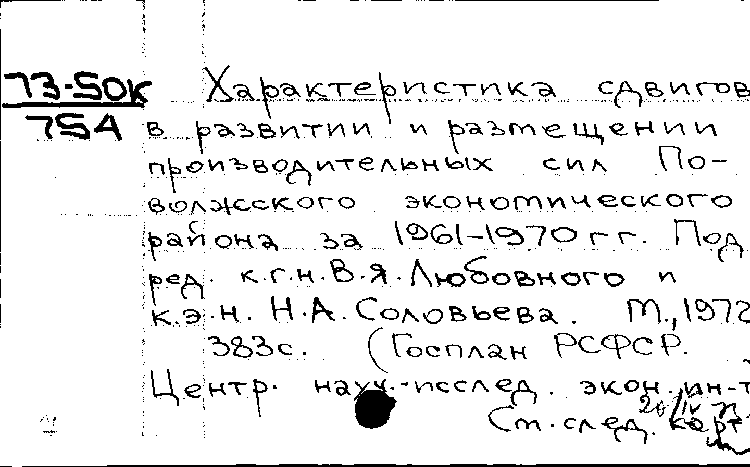 73-50к Характеристика сдвигов
754 в развитии и размещении
производительных сил По-
волжского экономического
района за 1961-1970 гг. Под
ред. к.г.н. В.Я. Любовного и
к.э.н. Н.А. Соловьева. М., 1972
383с. (Госплан РСФСР.
Центр. науч.-исслед. экон. ин-т
См. след. карт